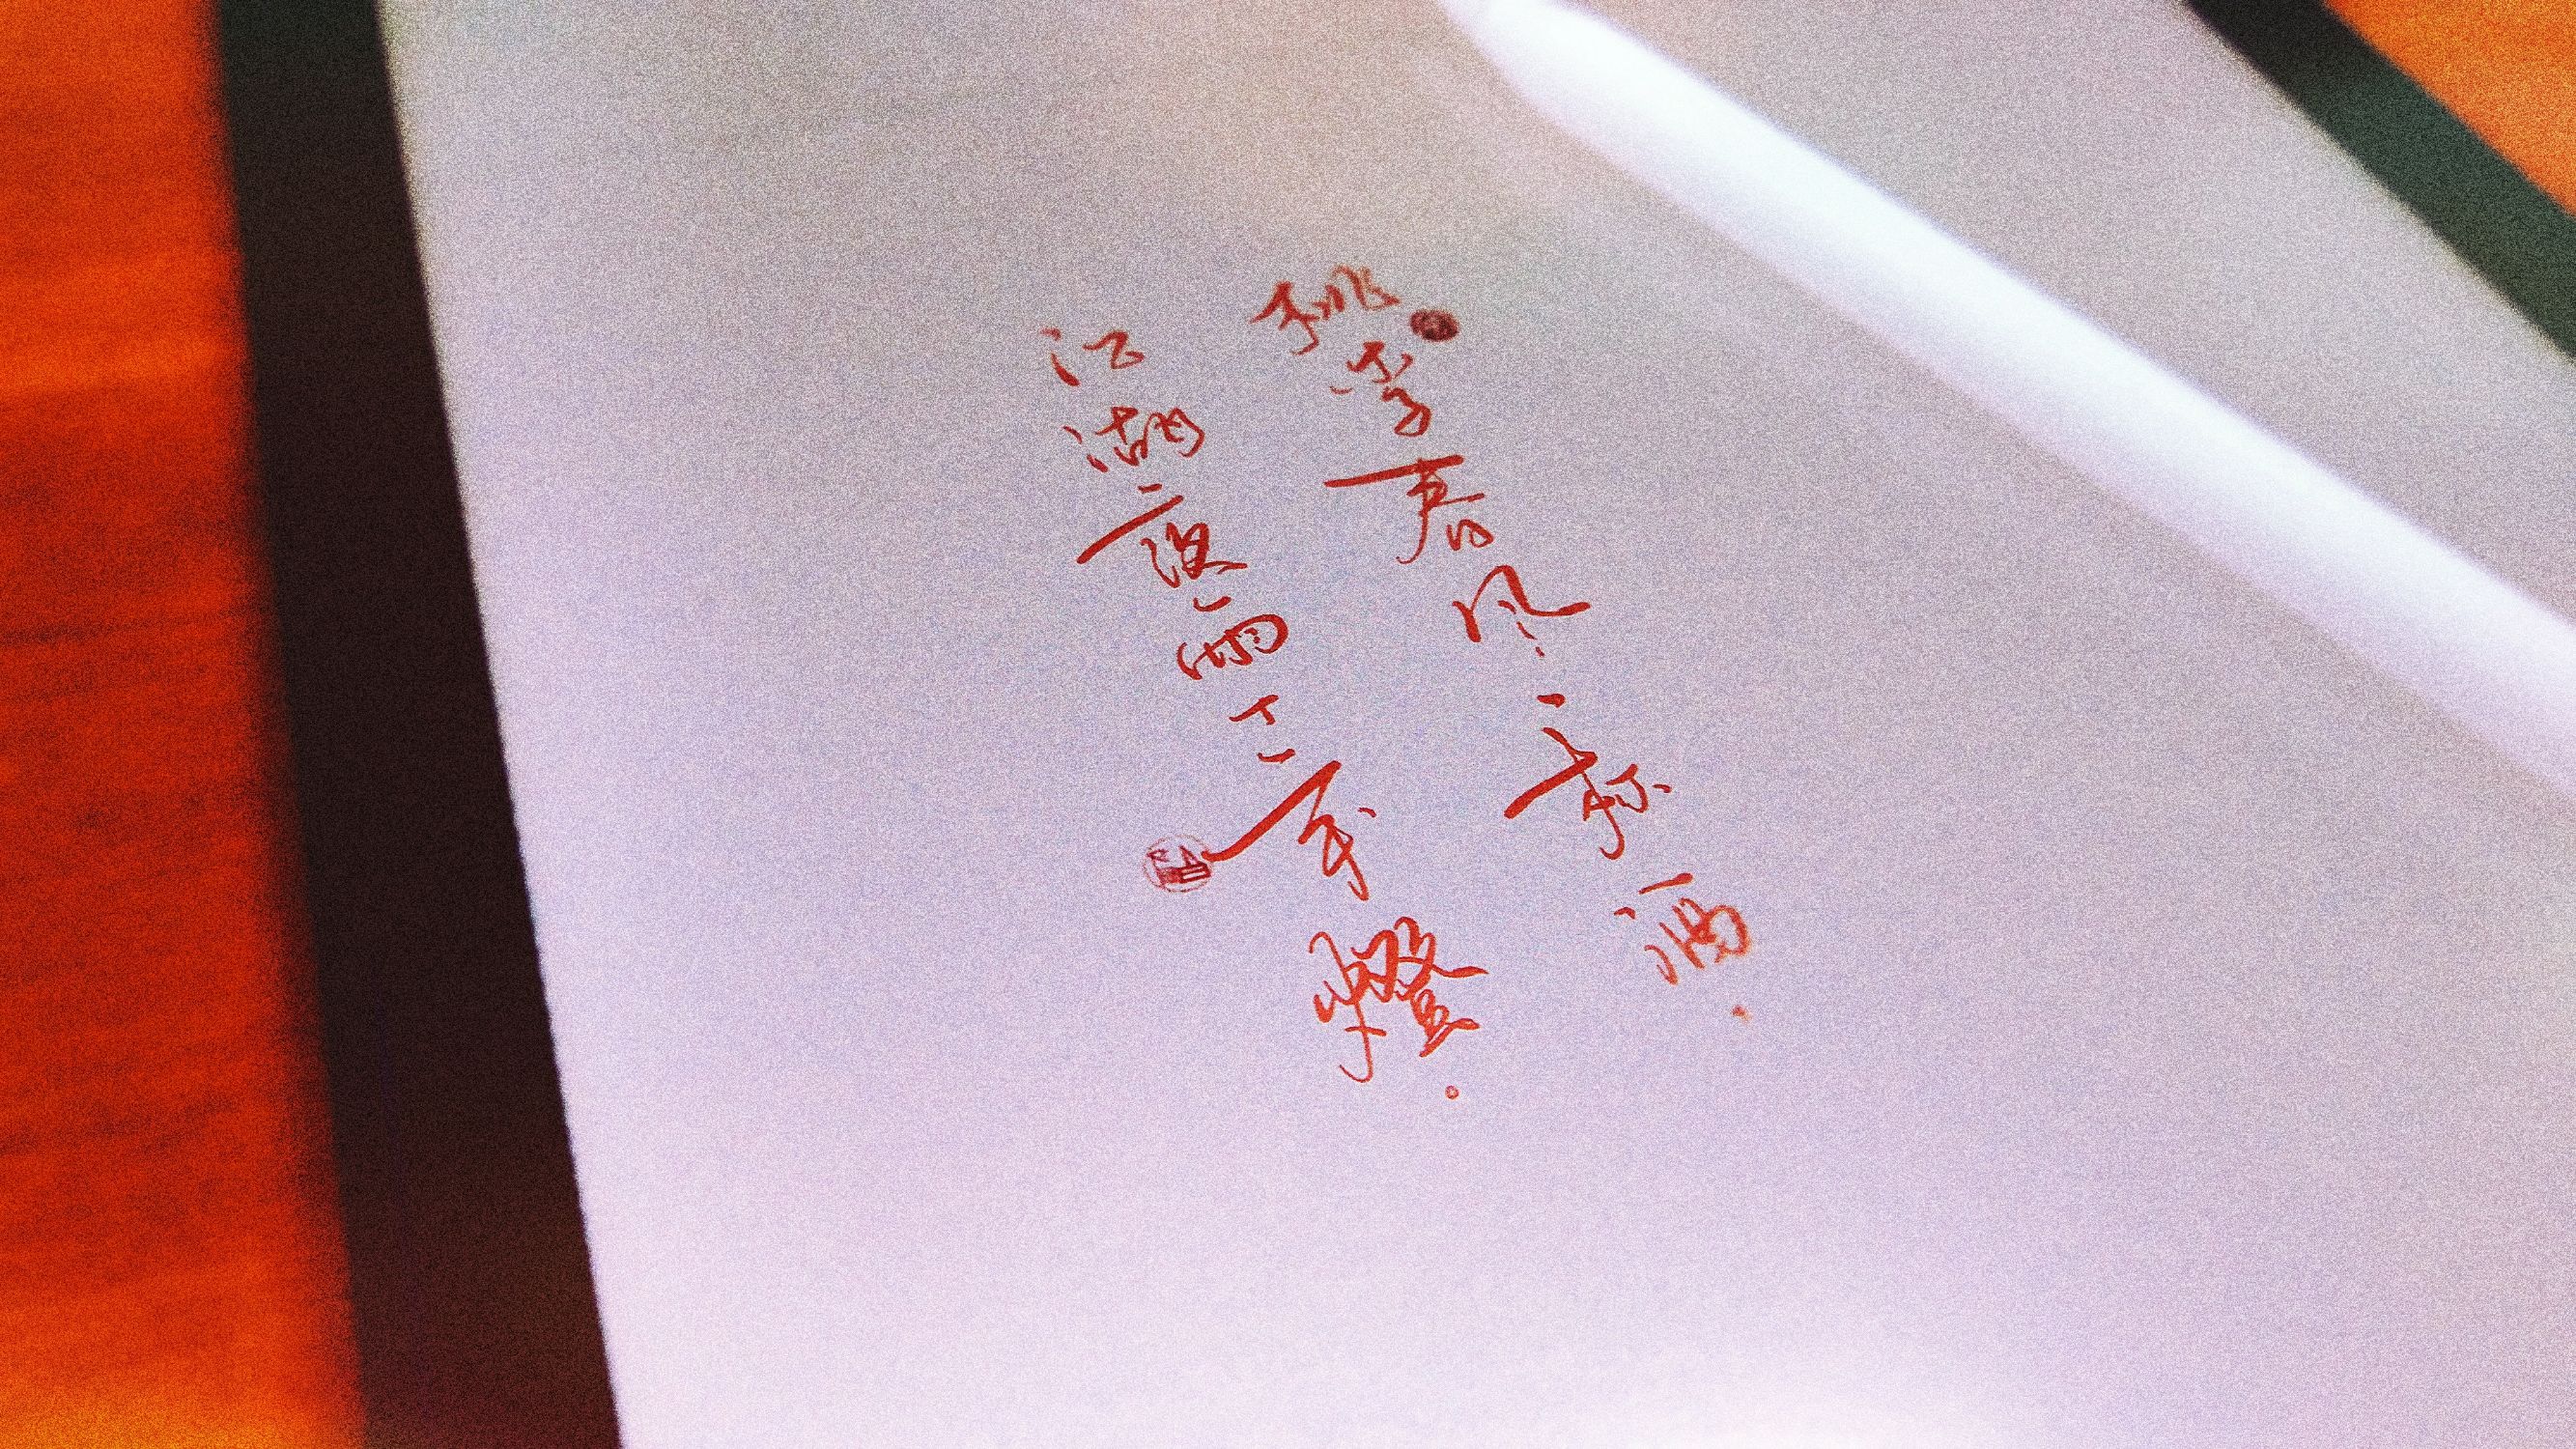 桃李春风一杯酒.
江湖夜雨十年燈。